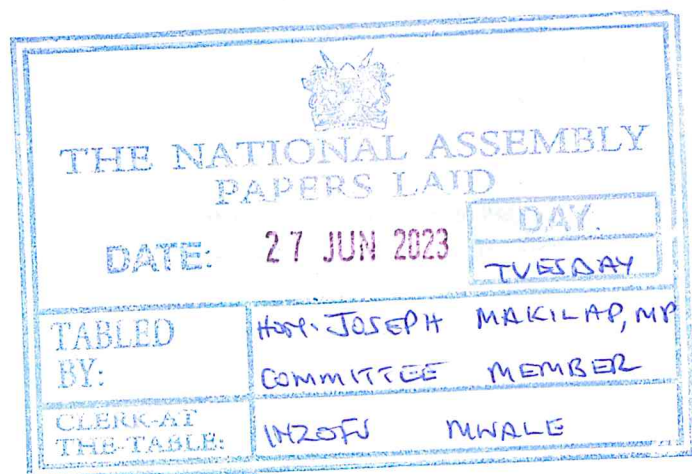 THE NATIONAL ASSEMBLY
PAPERS LAID
DATE: 27 JUN 2023
DAY.
TUESDAY
TABLED BY:
HON. JOSEPH MAKILAP, MP
COMMITTEE MEMBER
CLERK-AT THE-TABLE:
INZOFU MWALE